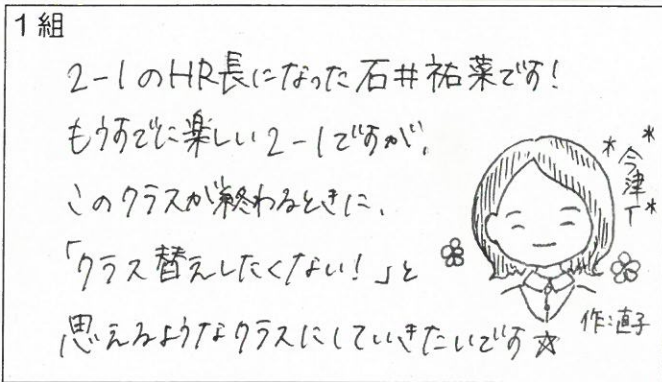 1組
2-1のHR長になった石井祐菜です!
もうすでに楽しい2-1ですが、
このクラスが終わるときに、
「クラス替えしたくない!」と
思えるようなクラスにしていきたいです☆
*今津T*
作:直子